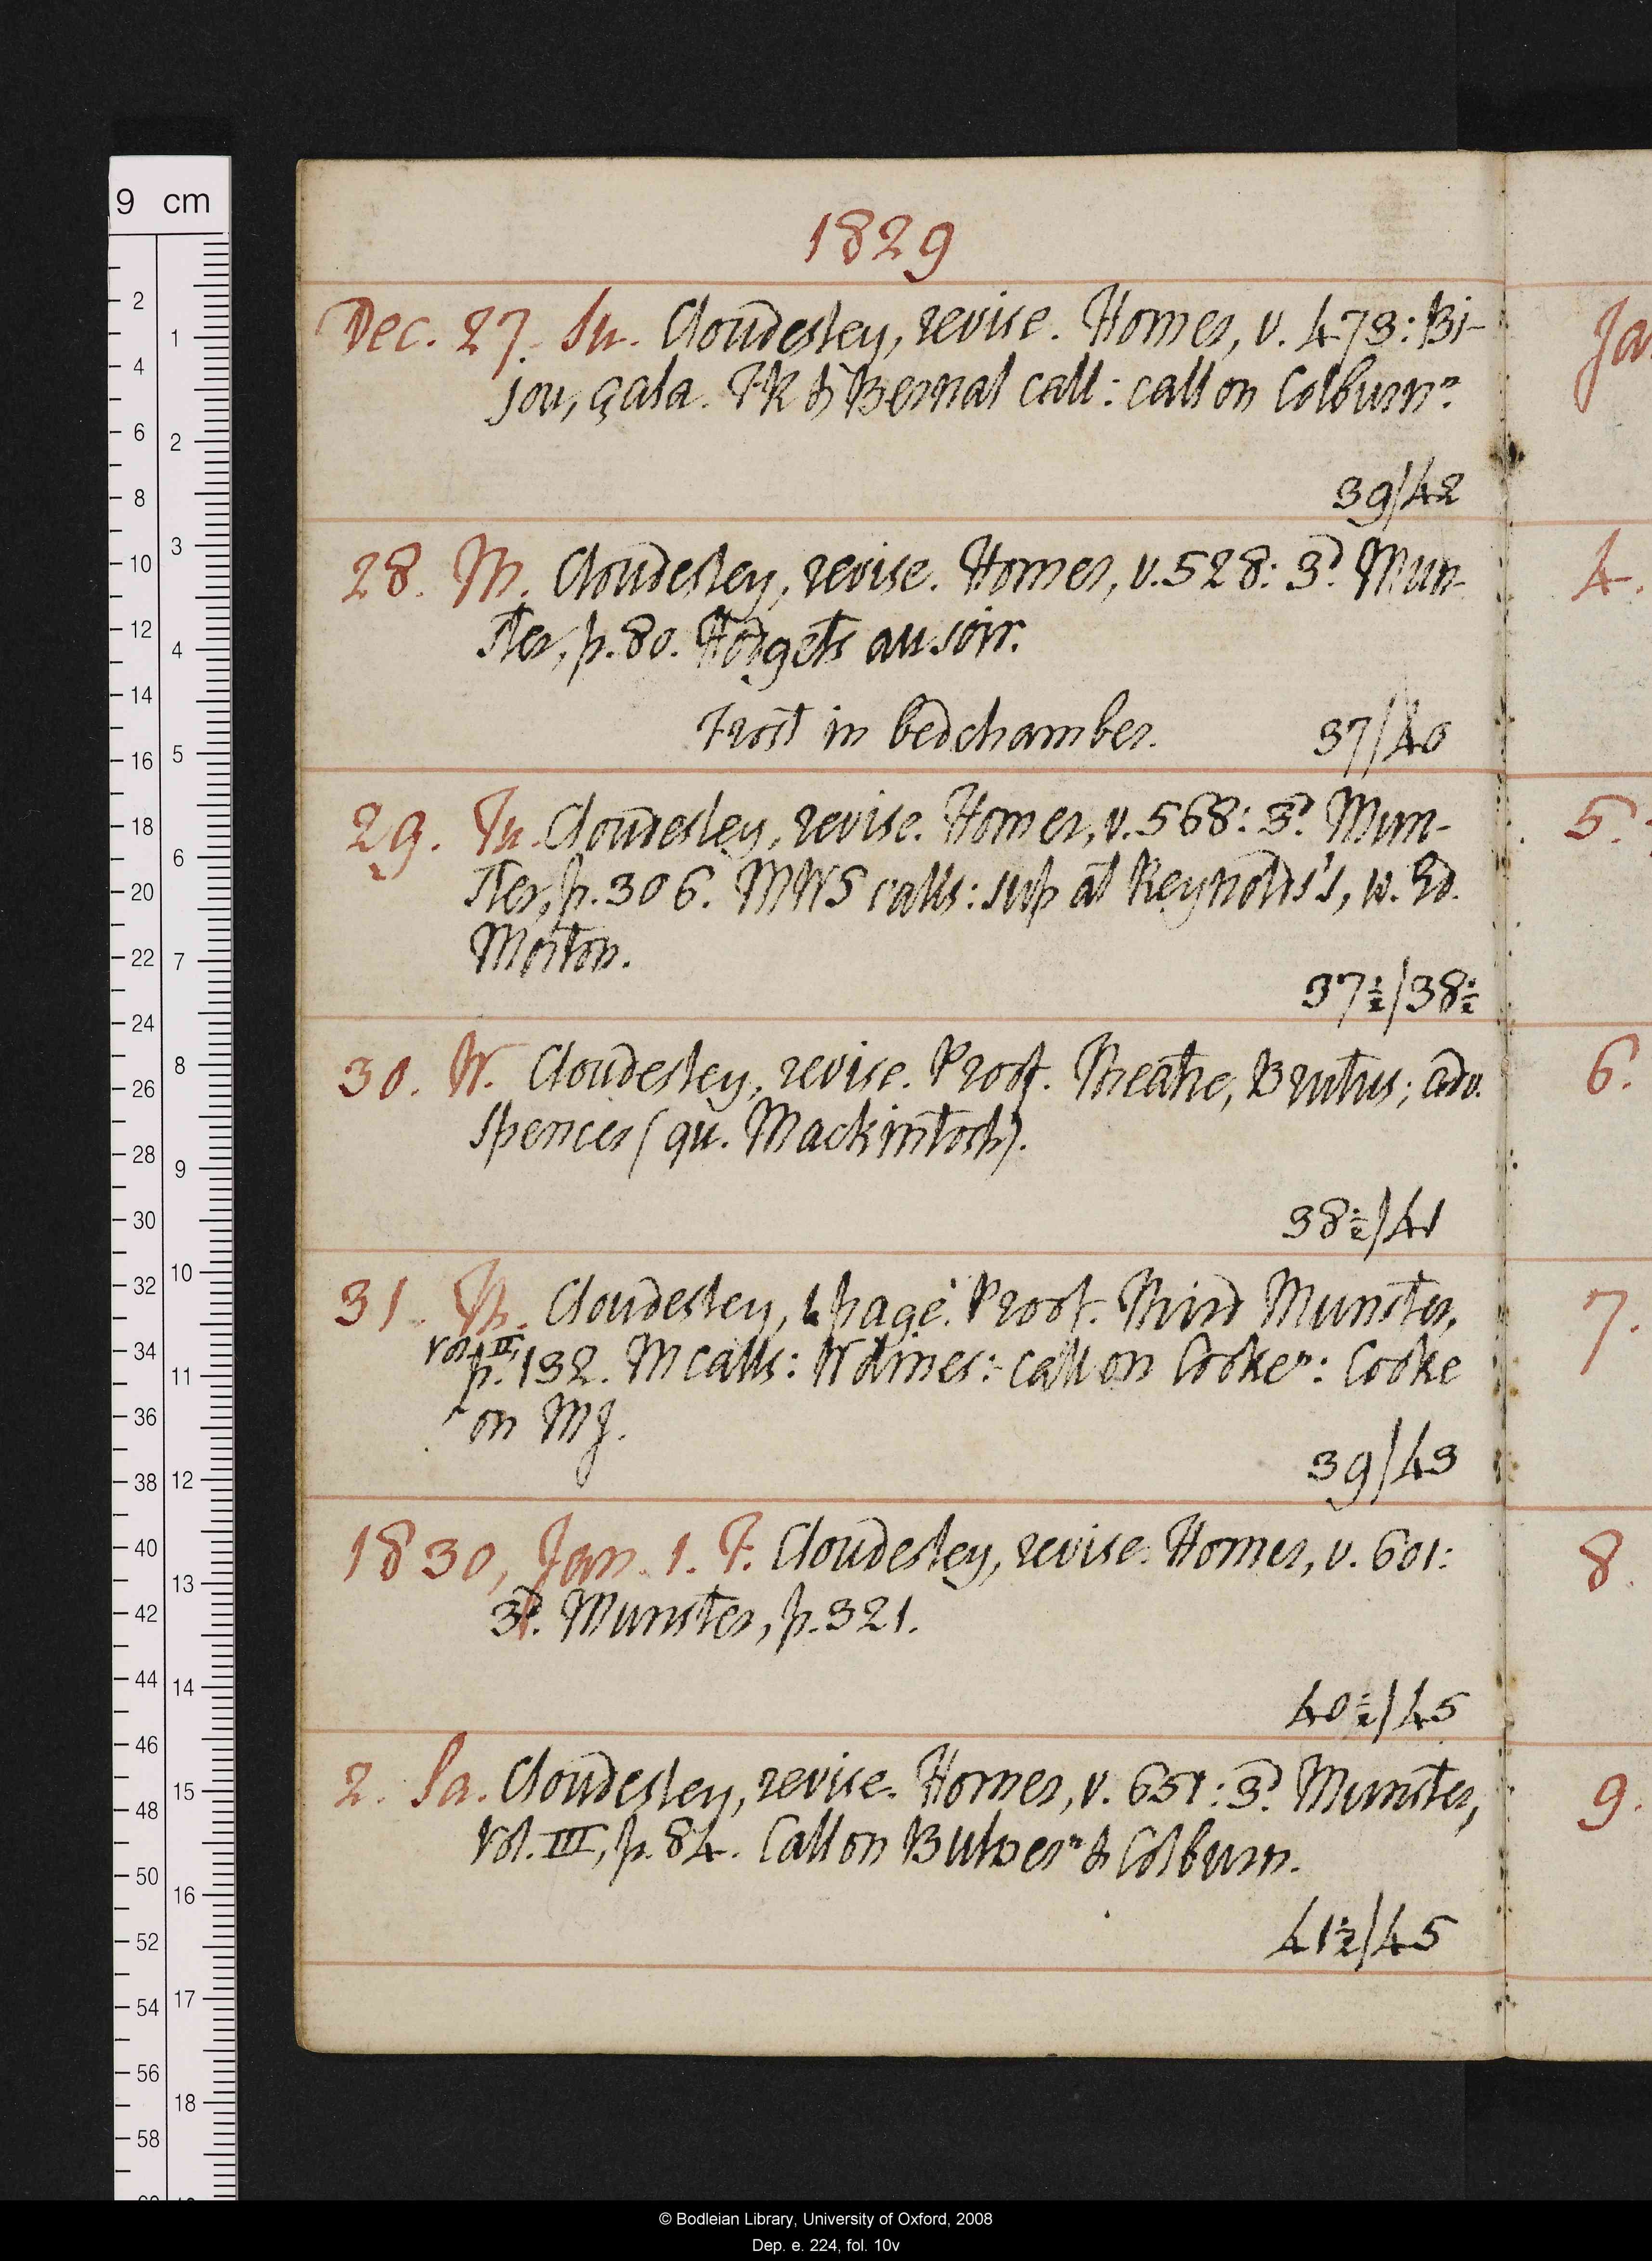 1829
Dec. 27. Su. Cloudesley, revise. Homer, v. 473: Bi-
jou, çala. FK & Bernal call: call on Colburnⁿ.
39/42
28. M. Cloudesley, revise. Homer, v. 528: 3ᵈ. Mun-
ster, p. 80. Hodgets au soir.
Frost in bedchamber. 37/40
29. Tu. Cloudesley, revise. Homer, v. 568: 3ᵈ. Mun-
ster, p. 306. MWS calls: sup at Reynolds's, w. Ed.
Morton.
37½/38½
30. W. Cloudesley, revise. Proof. Theatre, Brutus; adv.
Spencer (qu. Mackintosh).
38½/41
31. Th. Cloudesley, page. Proof. Third Munster,
vol. II, p. 132. M calls: W dines: call on Cookeⁿ: Cooke
on MJ.
39/43
1830, Jan. 1. F. Cloudesley, revise. Homer, v. 601:
3ᵈ. Munster, p. 321.
40½/45
2. Sa. Cloudesley, revise. Homer, v. 651: 3ᵈ. Munster,
Vol. III, p. 84. Call on Bulwerⁿ & Colburn.
41½/45
Ja
4.
5.
6.
7.
8.
9.
9 cm
2
4
6
8
10
12
14
16
18
20
22
24
26
28
30
32
34
36
38
40
42
44
46
48
50
52
54
56
58
1
2
3
4
5
6
7
8
9
10
11
12
13
14
15
16
17
18
© Bodleian Library, University of Oxford, 2008
Dep. e. 224, fol. 10v